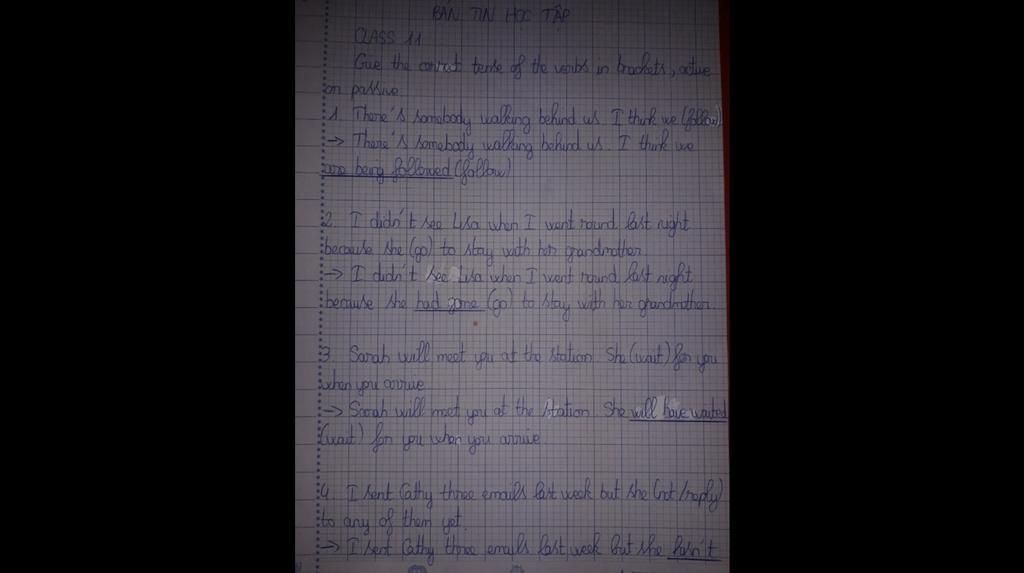 BẢN TIN HỌC TẬP
CLASS 11
Give the correct tense of the verbs in brackets, active
or passive
1. There's somebody walking behind us. I think we (follow)
-> There's somebody walking behind us. I think we
are being followed (follow)
2. I didn't see Lisa when I went round last night
because she (go) to stay with her grandmother
-> I didn't see Lisa when I went round last night
because she had gone (go) to stay with her grandmother.
3. Sarah will meet you at the station. She (wait) for you
when you arrive
-> Sarah will meet you at the station. She will have waited
(wait) for you when you arrive.
4. I sent Cathy three emails last week but she (not/reply)
to any of them yet.
-> I sent Cathy three emails last week but she hasn't